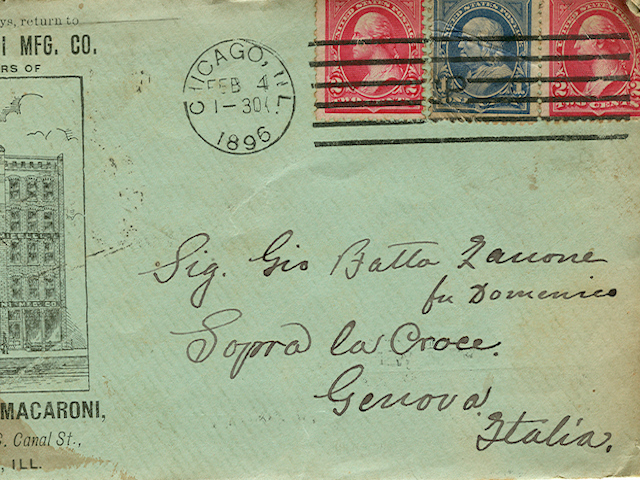 ys, return to
I MFG. CO.
RS OF
CHICAGO, ILL.
FEB 4
1-30
1896
UNITED STATES POSTAGE
Sig. Gio Batta Zanone
fu Domenico
Sopra la Croce.
Genova.
Italia.
MACARONI,
C. Canal St.,
, ILL.